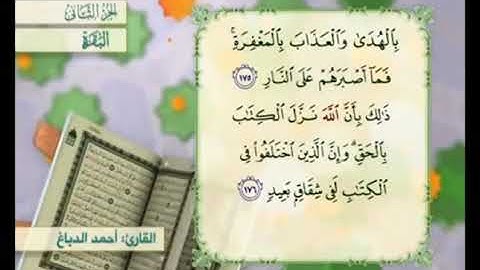 الجزء الثاني
البقرة
بِٱلۡهُدَىٰ وَٱلۡعَذَابَ بِٱلۡمَغۡفِرَةِۚ
فَمَآ أَصۡبَرَهُمۡ عَلَى ٱلنَّارِ ١٧٥
ذَٰلِكَ بِأَنَّ ٱللَّهَ نَزَّلَ ٱلۡكِتَٰبَ
بِٱلۡحَقِّۗ وَإِنَّ ٱلَّذِينَ ٱخۡتَلَفُواْ فِي
ٱلۡكِتَٰبِ لَفِي شِقَاقِۭ بَعِيدٖ ١٧٦
القارئ: أحمد الدباغ